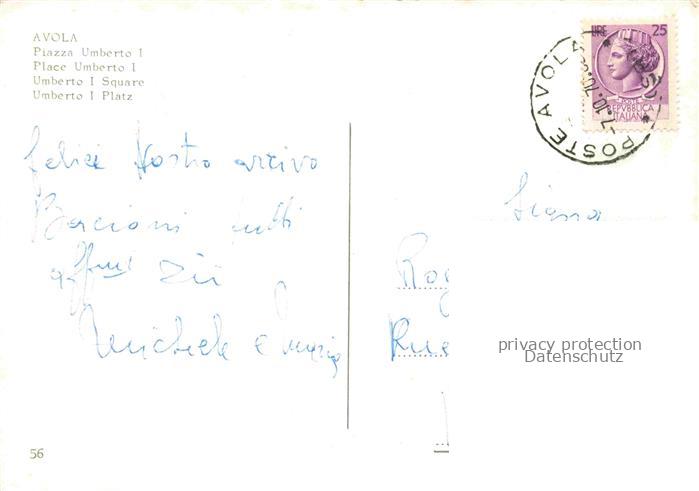 AVOLA
Piazza Umberto I
Place Umberto I
Umberto I Square
Umberto I Platz
LIRE 25
POSTE
REPVBBLICA
ITALIANA
POSTE AVOLA
7.10.70
felici Nostro arrivo
Bacioni tutti
affmi Zii
Michele e Maria
Signa
Ro
Rue
privacy protection
Datenschutz
56